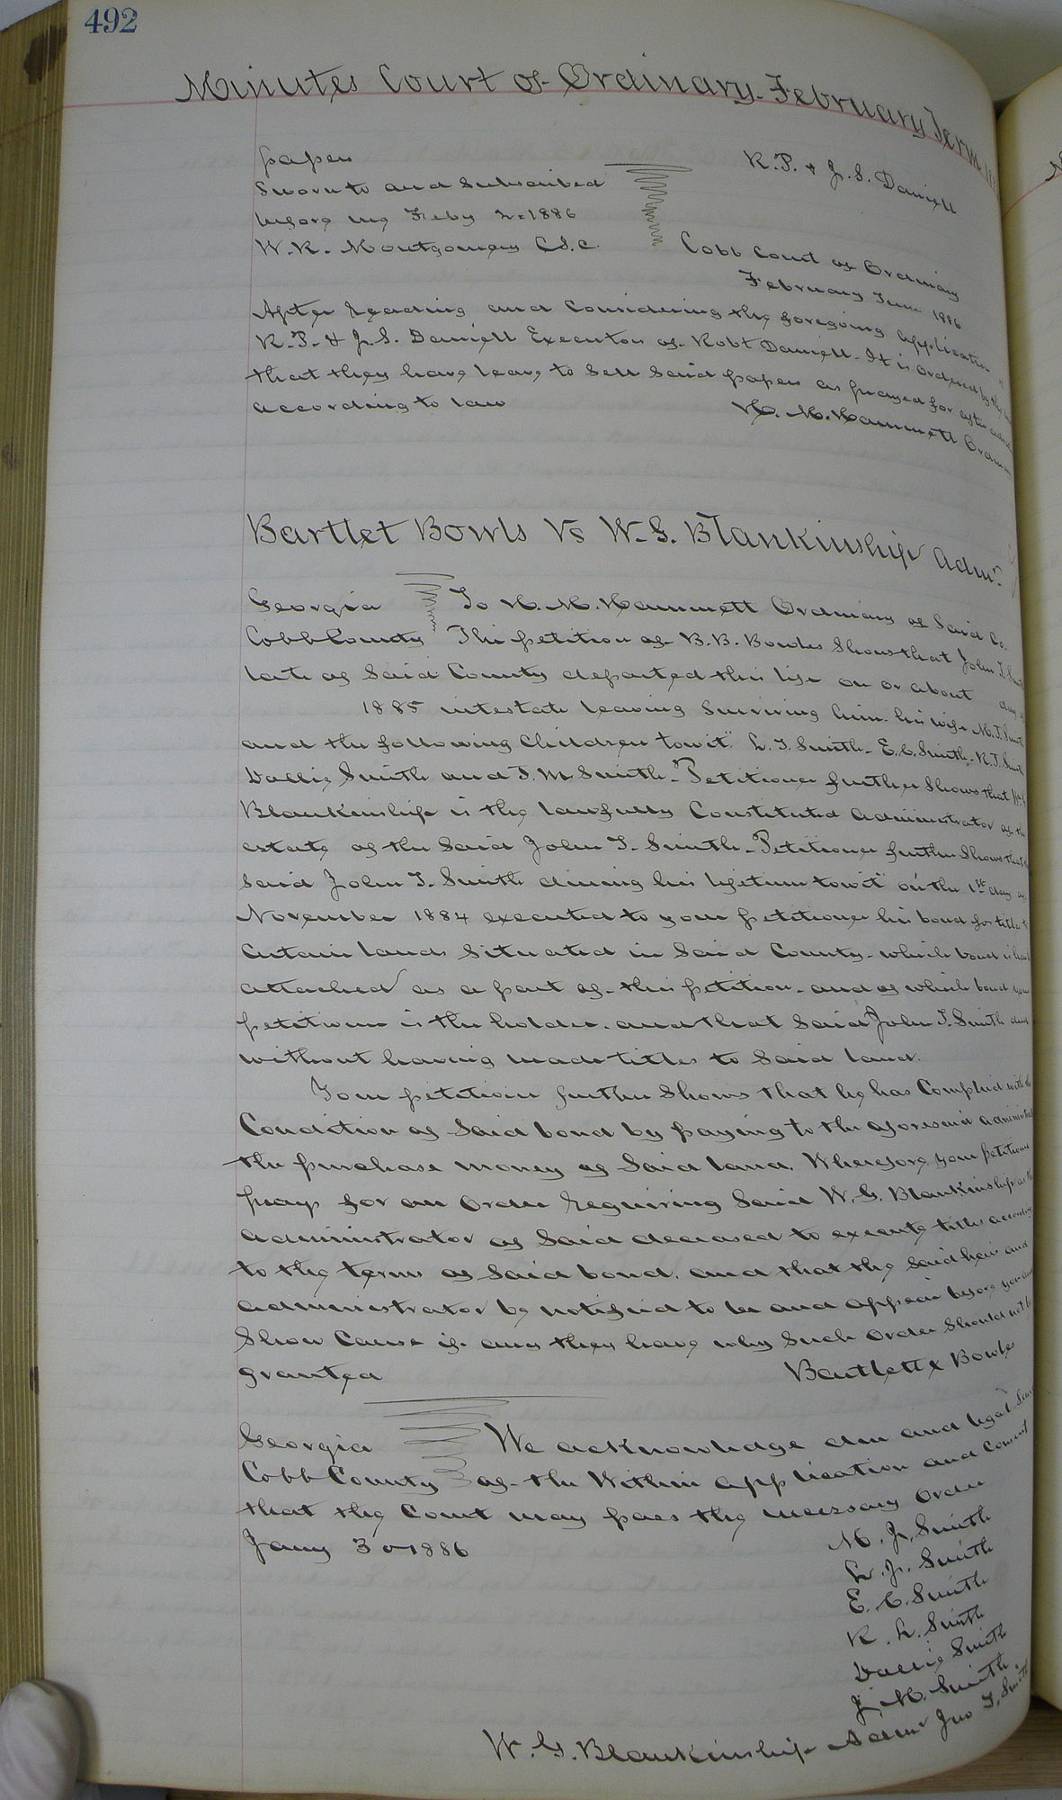 492
Minutes Court of Ordinary. February Term
papers
Sworn to and Subscribed
before me Feby 2-1886
W. R. Montgomery C.S.C.
R. P. & J. S. Daniell
Cobb Court of Ordinary
February Term 1886
After reading and Considering the foregoing application
R. P. & J. S. Daniell Executors of Robt Daniell. It is Ordered by the
that they have leave to Sell Said papers as prayed for after
according to law
H. M. Hammett Ordinary
Bartlet Bowls Vs W. G. Blankinship Admr.
Georgia To H. M. Hammett Ordinary of Said Co.
Cobb County The petition of B. B. Bowles Shows that John T. Smith
late of Said County departed this life on or about day of
1885 intestate leaving Surviving him his wife M. J. Smith
and the following Children towit". L. J. Smith. E. C. Smith. R. L. Smith
Dallie Smith and J. M Smith. Petitioner further Shows that W. G.
Blankinship is the lawfully Constituted administrator of the
estate of the Said John T. Smith. Petitioner further Shows that
Said John T. Smith during his lifetime towit" on the 1st day of
November 1884 executed to your petitioner his bond for title to
Certain lands Situated in Said County. which bond is
attached as a part of this petition. and of which bond your
petitioner is the holder. and that Said John T. Smith died
without having made titles to Said land.
Your petitioner further Shows that he has Complied with the
Condition of Said bond by paying to the aforesaid administrator
the purchase money of Said land. Wherefore your petitioner
prays for an Order requiring Said W. G. Blankinship as
administrator of Said deceased to execute titles according
to the terms of Said bond. and that the Said heirs and
administrator be notified to be and appear before your
Show Cause if any they have why Such Order Should not be
granted
Bartlett & Bowles
Georgia We acknowledge due and legal Service
Cobb County of the Within application and Consent
that the Court may pass the necessary Order
Jany 30 1886
M. J. Smith
L. J. Smith
E. C. Smith
R. L. Smith
Dallie Smith
J. M. Smith.
W. G. Blankinship Admr Jno T. Smith